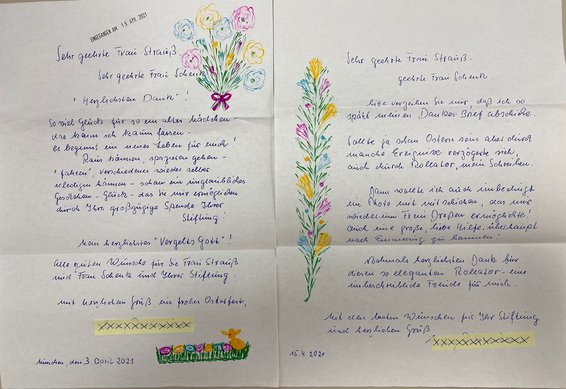 EINGEGANGEN AM 19. APR. 2021
Sehr geehrte Frau Strauß,
Sehr geehrte Frau Schenk
"Herzlichsten Dank"!
So viel Glück für so ein altes Mädchen -
das kann ich kaum fassen -
es beginnt ein neues Leben für mich!
Raus können, spazieren gehen -
"fahren", verschiedenes wieder selber
erledigen können - schon ein unglaubliches
Geschehen - Glück, das Sie mir ermöglichen
durch Ihre großzügige Spende Ihrer
Stiftung!
Ein herzlichstes "Vergelts Gott"!
Alle guten Wünsche für Sie Frau Strauß
und Frau Schenk und Ihrer Stiftung
mit herzlichen Grüß ein frohes Osterfest,
XXXXXXXXXX
München, den 3. April 2021
Sehr geehrte Frau Strauß,
geehrte Frau Schenk
bitte vergeben Sie mir, daß ich so
spät meinen Dankes Brief abschicke.
Sollte ja schon Ostern sein aber durch
manche Ereignisse verzögerte sich,
auch durch Rollator, mein Schreiben.
Dann wollte ich auch unbedingt
ein Photo mit mitschicken, das mir
wieder im Freien Draußen ermöglichte!
Auch eine große, liebe Hilfe, überhaupt
nach zu kommen!
Nochmals herzlichsten Dank für
diesen so eleganten Rollator - eine
unbeschreibliche Freude für mich.
Mit den besten Wünschen für Ihr Stiftung
und herzlichen Grüß
XXXXXXXXXX
15.4.2021